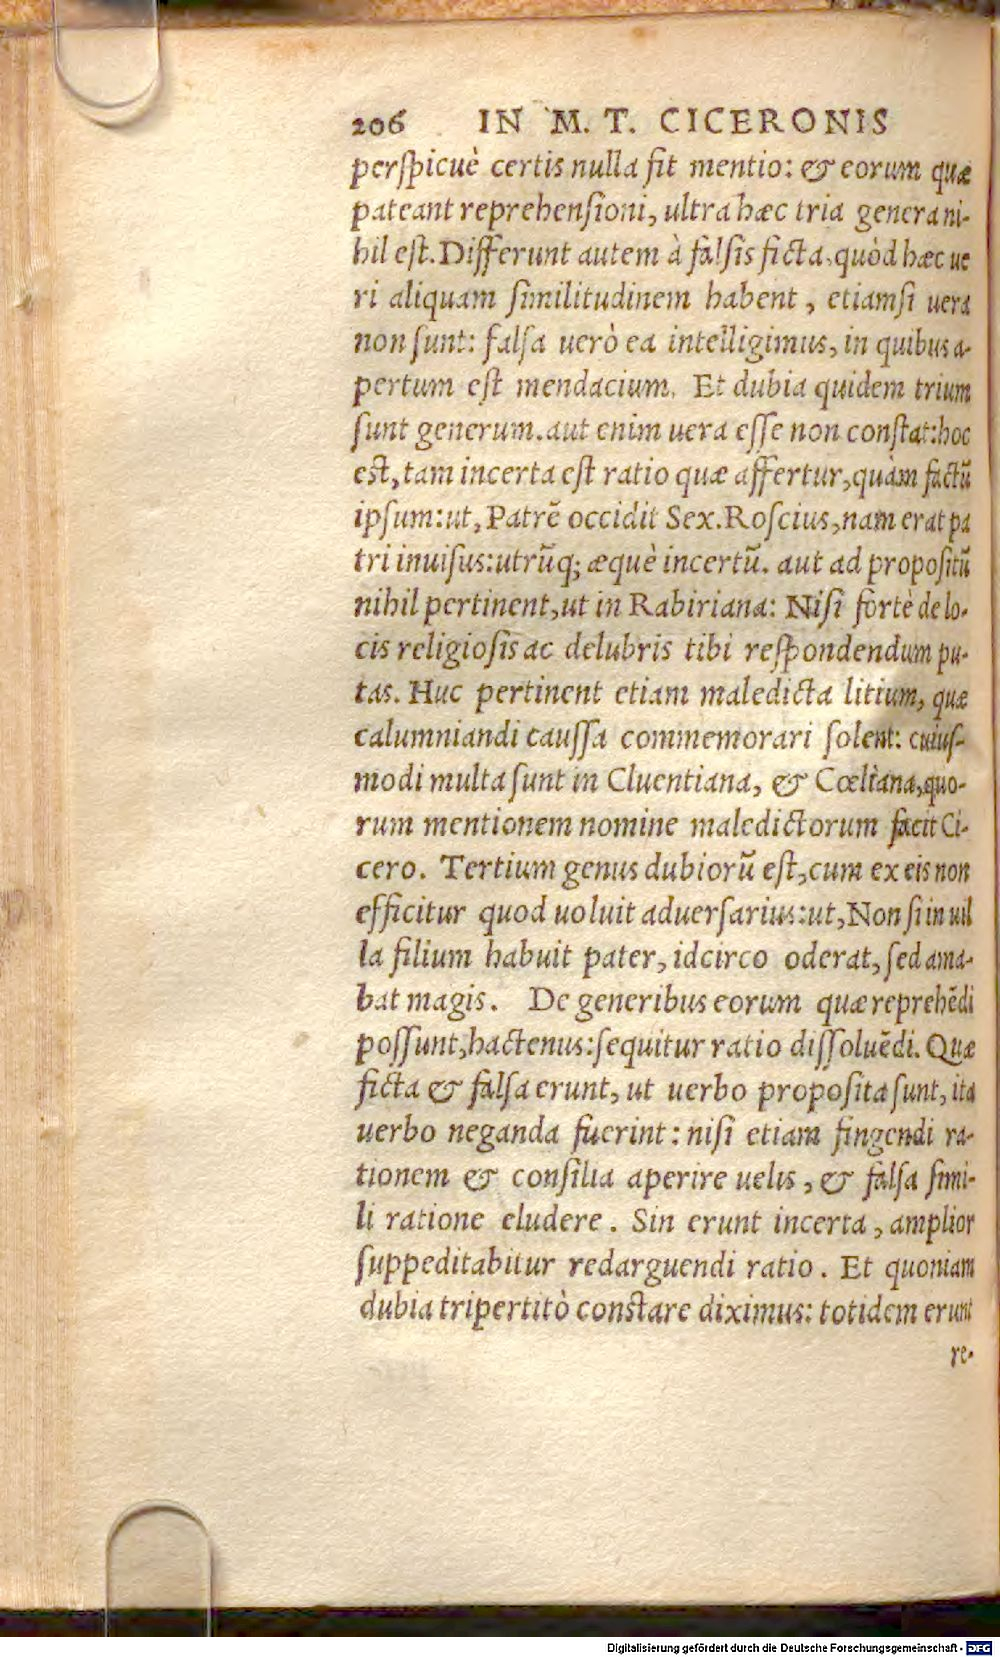 206 IN M. T. CICERONIS
perspicuè certis nulla fit mentio: & eorum quæ
pateant reprehensioni, ultra hæc tria genera ni-
hil est. Differunt autem à falsis ficta, quòd hæc ue
ri aliquam similitudinem habent, etiamsi uera
non sunt: falsa uerò ea intelligimus, in quibus a-
pertum est mendacium. Et dubia quidem trium
sunt generum. aut enim uera esse non constat: hoc
est, tam incerta est ratio quæ affertur, quàm factũ
ipsum: ut, Patrẽ occidit Sex. Roscius, nam erat pa
tri inuisus: utrũq; æquè incertũ. aut ad propositũ
nihil pertinent, ut in Rabiriana: Nisi fortè de lo-
cis religiosis ac delubris tibi respondendum pu-
tas. Huc pertinent etiam maledicta litium, quæ
calumniandi caussa commemorari solent: cuius-
modi multa sunt in Cluentiana, & Cœliana, quo-
rum mentionem nomine maledictorum facit Ci-
cero. Tertium genus dubiorũ est, cum ex eis non
efficitur quod uoluit aduersarius: ut, Non si in uil
la filium habuit pater, idcirco oderat, sed ama-
bat magis. De generibus eorum quæ reprehẽdi
possunt, hactenus: sequitur ratio dissoluẽdi. Quæ
ficta & falsa erunt, ut uerbo proposita sunt, ita
uerbo neganda fuerint: nisi etiam fingendi ra-
tionem & consilia aperire uelis, & falsa simi-
li ratione eludere. Sin erunt incerta, amplior
suppeditabitur redarguendi ratio. Et quoniam
dubia tripertitò constare diximus: totidem erunt
re-
Digitalisierung gefördert durch die Deutsche Forschungsgemeinschaft - DFG